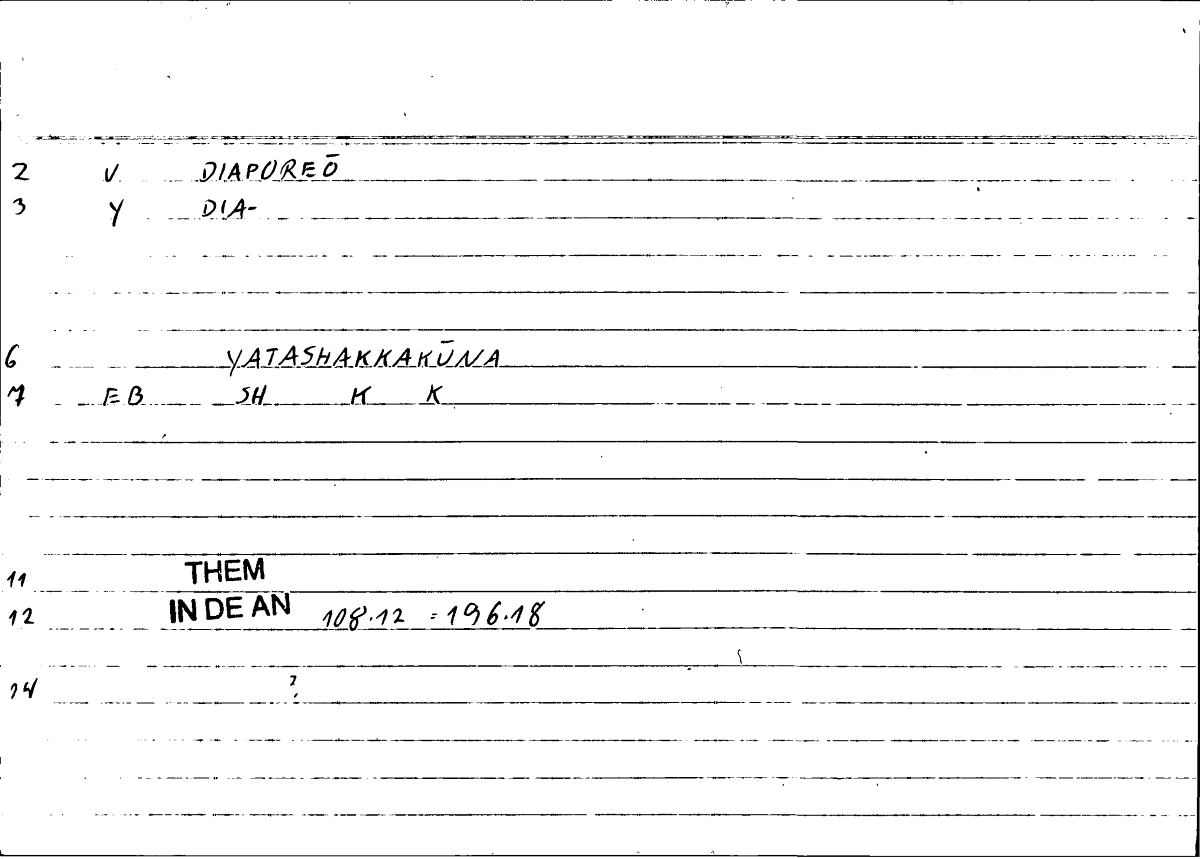 2 V DIAPOREŌ
3 Y DIA-
6 YATASHAKKAKŪNA
7 EB SH K K
11 THEM
12 IN DE AN 108.12 = 196.18
14 ?